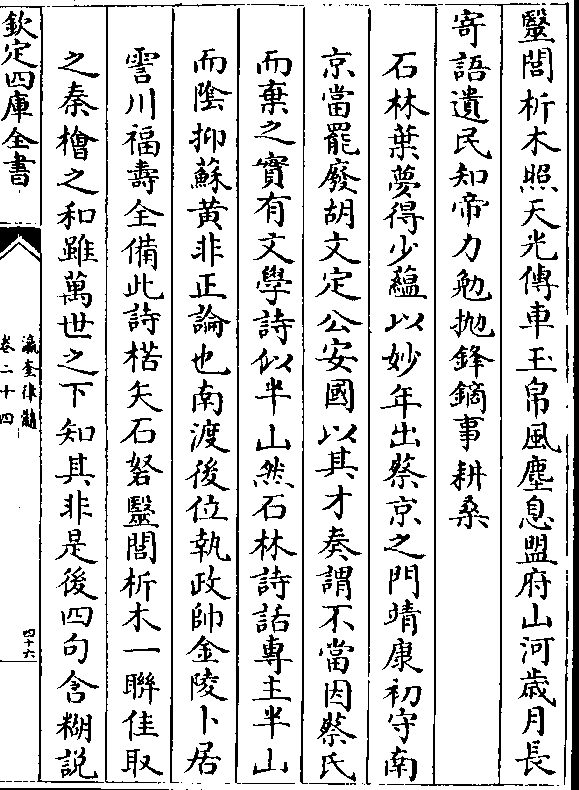 毉閭析木照天光傳車玉帛風塵息盟府山河歳月長
寄語遺民知帝力勉抛鋒鏑事耕桑
石林葉夢得少藴以妙年出蔡京之門靖康初守南
京當罷廢胡文定公安國以其才奏謂不當因蔡氏
而棄之實有文學詩似半山然石林詩話專主半山
而隂抑蘇黄非正論也南渡後位執政帥金陵卜居
霅川福壽全備此詩楛矢石砮毉閭析木一聯佳取
之秦檜之和雖萬世之下知其非是後四句含糊説
欽定四庫全書
瀛奎律髓
卷二十四
四十六